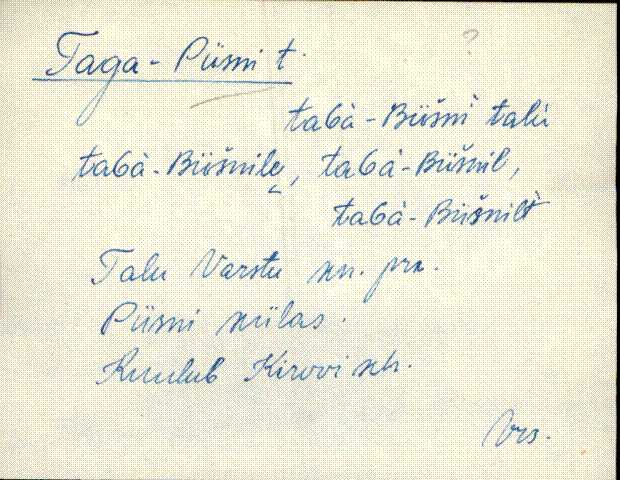 Taga-Püsni t.
?
taGà-Büšnì talù
taGà-Büšnile̬, taGà-Büšnil,
taGà-Büšnilt
Talu Varstu kn. prk.
Püsni külas.
Kuulub Kirovi kh.
Vrs.